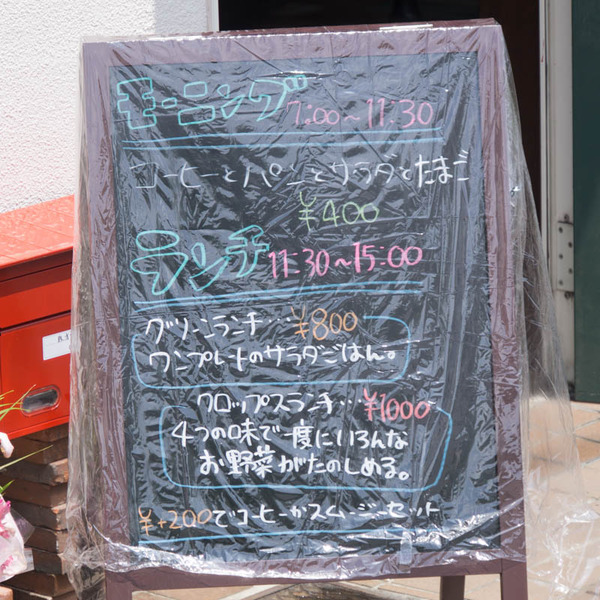 モーニング 7:00～11:30
コーヒーとパンとサラダとたまご
¥400
ランチ 11:30～15:00
グリーンランチ…¥800
ワンプレートのサラダごはん。
クロップスランチ…¥1000
4つの味で一度にいろんな
お野菜がたのしめる。
¥+200でコーヒーかスムージーセット